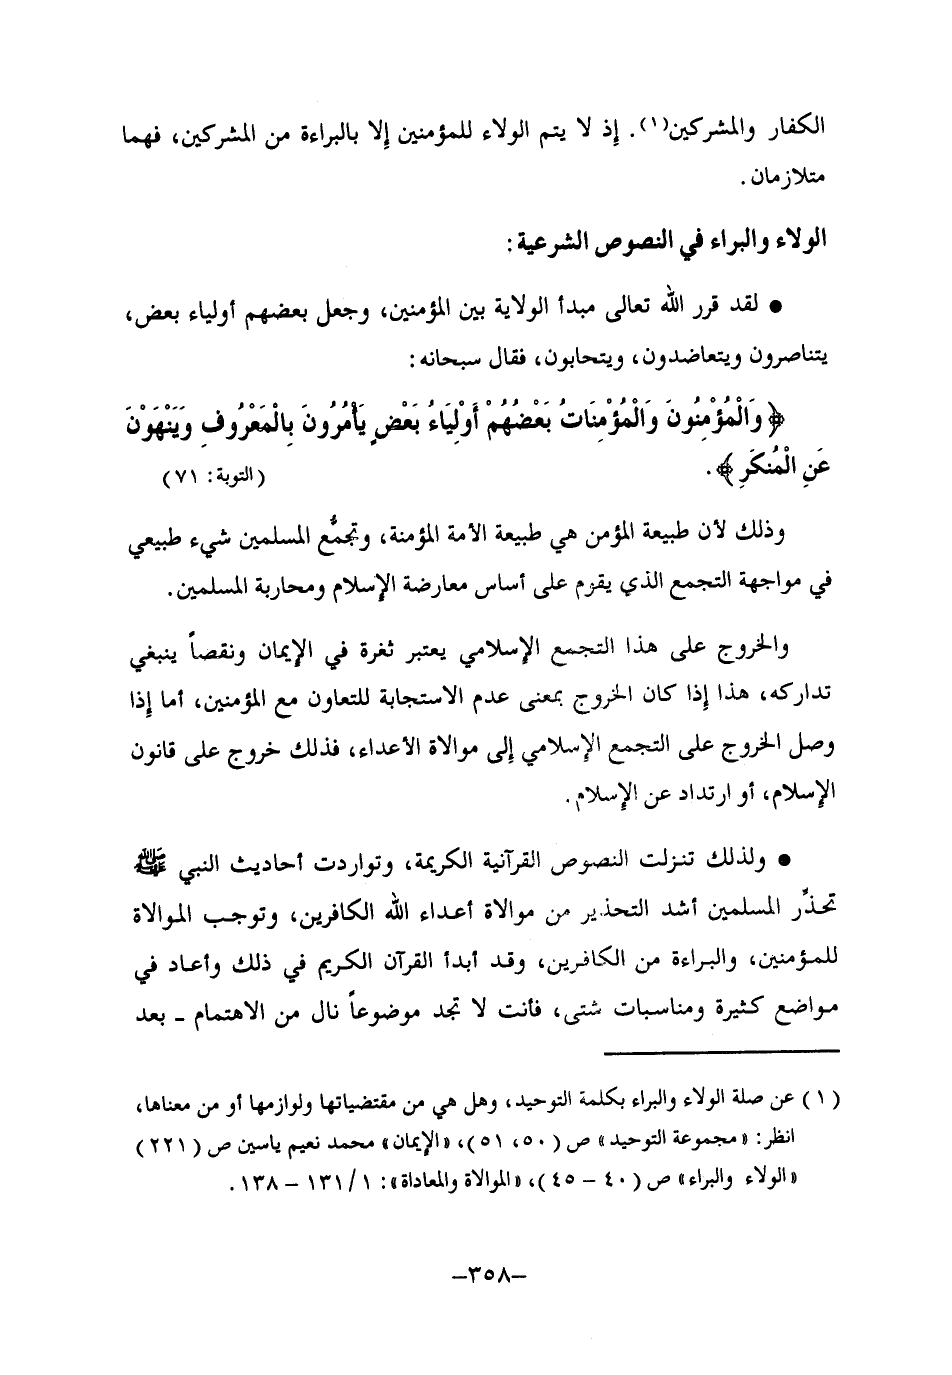 الكفار والمشركين(١). إذ لا يتم الولاء للمؤمنين إلا بالبراءة من المشركين، فهما
متلازمان.
الولاء والبراء في النصوص الشرعية:
● لقد قرر الله تعالى مبدأ الولاية بين المؤمنين، وجعل بعضهم أولياء بعض،
يتناصرون ويتعاضدون، ويتحابون، فقال سبحانه:
﴿وَالْمُؤْمِنُونَ وَالْمُؤْمِنَاتُ بَعْضُهُمْ أَوْلِيَاءُ بَعْضٍ يَأْمُرُونَ بِالْمَعْرُوفِ وَيَنْهَوْنَ
عَنِ الْمُنكَرِ﴾. (التوبة: ٧١)
وذلك لأن طبيعة المؤمن هي طبيعة الأمة المؤمنة، وتجمُّع المسلمين شيء طبيعي
في مواجهة التجمع الذي يقوم على أساس معارضة الإسلام ومحاربة المسلمين.
والخروج على هذا التجمع الإسلامي يعتبر ثغرة في الإيمان ونقصاً ينبغي
تداركه، هذا إذا كان الخروج بمعنى عدم الاستجابة للتعاون مع المؤمنين، أما إذا
وصل الخروج على التجمع الإسلامي إلى موالاة الأعداء، فذلك خروج على قانون
الإسلام، أو ارتداد عن الإسلام.
● ولذلك تنزلت النصوص القرآنية الكريمة، وتواردت أحاديث النبي ﷺ
تحذِّر المسلمين أشد التحذير من موالاة أعداء الله الكافرين، وتوجب الموالاة
للمؤمنين، والبراءة من الكافرين، وقد أبدأ القرآن الكريم في ذلك وأعاد في
مواضع كثيرة ومناسبات شتى، فأنت لا تجد موضوعاً نال من الاهتمام ـ بعد
(١) عن صلة الولاء والبراء بكلمة التوحيد، وهل هي من مقتضياتها ولوازمها أو من معناها،
انظر: «مجموعة التوحيد» ص (٥٠، ٥١)، «الإيمان» محمد نعيم ياسين ص (٢٢١)
«الولاء والبراء» ص (٤٠ – ٤٥)، «الموالاة والمعاداة»: ١/ ١٣١ – ١٣٨.
–٣٥٨–